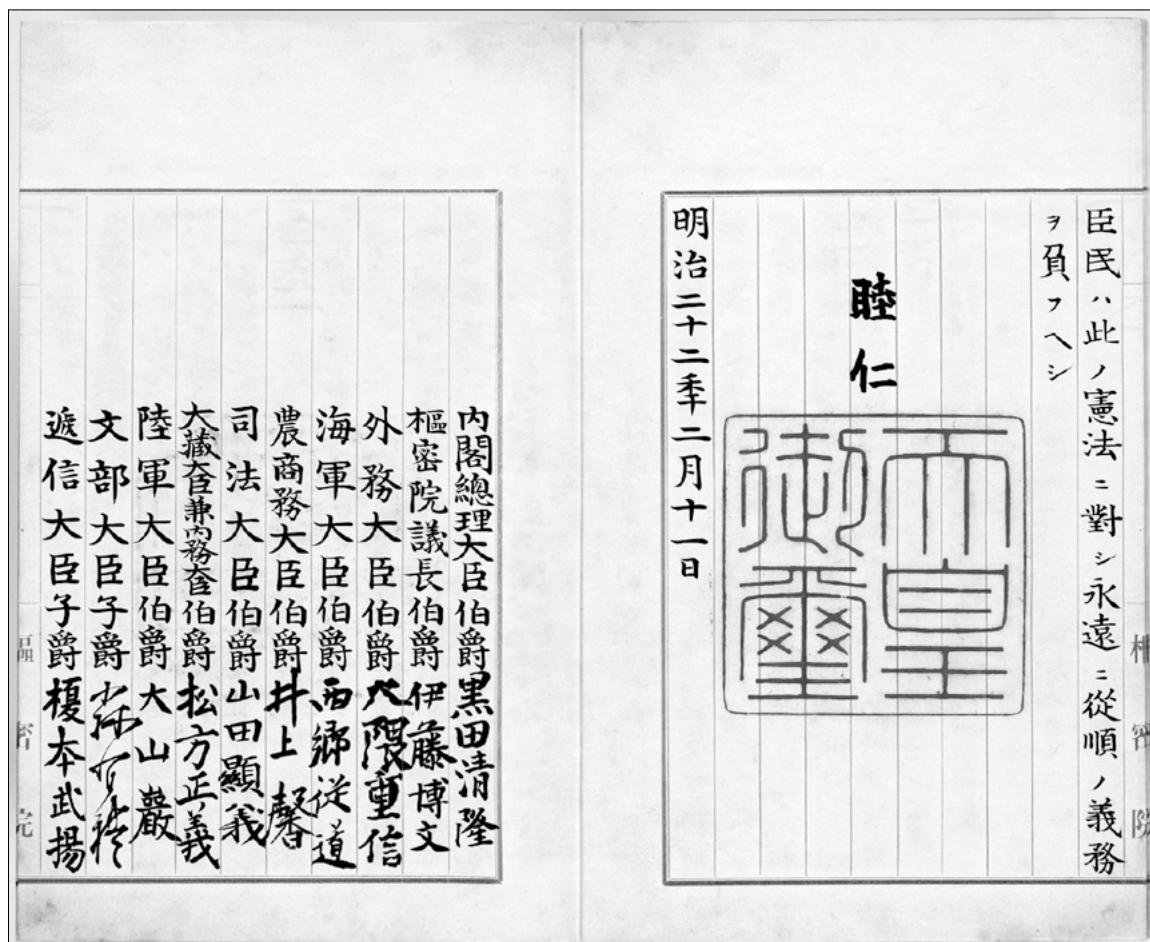 臣民ハ此ノ憲法ニ對シ永遠ニ從順ノ義務
ヲ負フヘシ
睦仁
天皇御璽
明治二十二年二月十一日
內閣總理大臣伯爵黒田清隆
樞密院議長伯爵伊藤博文
外務大臣伯爵大隈重信
海軍大臣伯爵西郷従道
農商務大臣伯爵井上馨
司法大臣伯爵山田顯義
大藏大臣兼內務大臣伯爵松方正義
陸軍大臣伯爵大山巌
文部大臣子爵森有禮
遞信大臣子爵榎本武揚
樞密院
樞密院